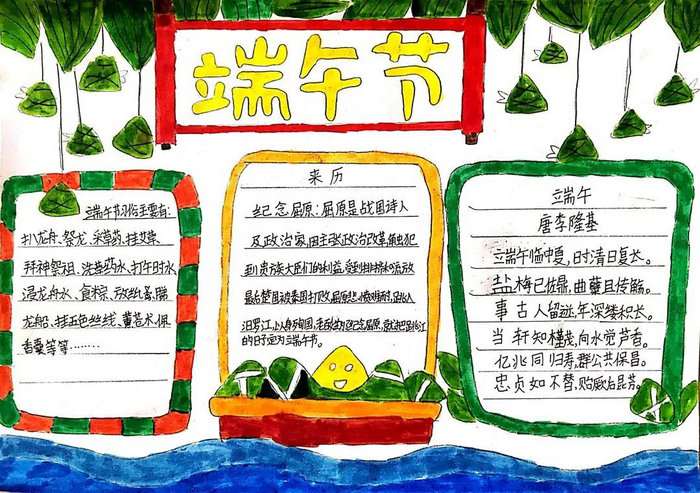 端午节
端午节习俗主要有:
扒龙舟、祭龙、采草药、挂艾草、
拜神祭祖、洗草药水、打午时水
浸龙舟水、食粽、放纸鸢、睇
龙船、拴五色丝线、薰苍术、佩
香囊等等………
来历
纪念屈原:屈原是战国诗人
及政治家,因主张政治改革,触犯
到贵族大臣们的利益,受到排挤和流放
最后楚国被秦国打败,屈原悲愤
汨罗江,以身殉国,老百姓为纪念屈原,
的日子定为端午节。
端午
唐李隆基
端午临中夏,时清日复长。
盐梅已佐鼎,曲糵且传觞。
事古人留迹,年深缕积长。
当轩知槿茂,向水觉芦香。
亿兆同归寿,群公共保昌。
忠贞如不替,贻厥后昆芳。